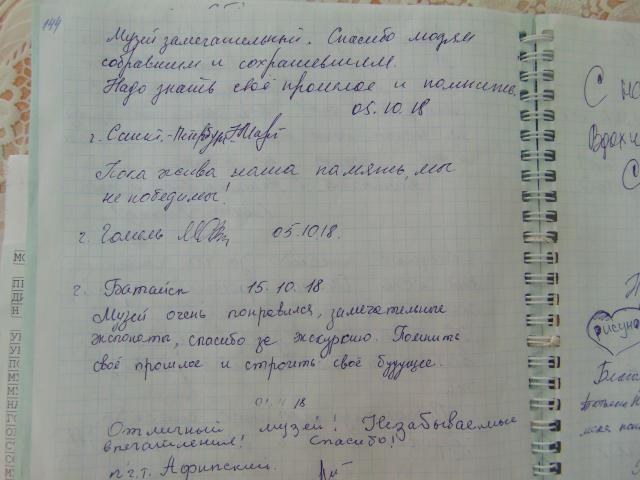 144
Музей замечательный. Спасибо людям
собравшим и сохранившим.
Надо знать своё прошлое и помнить.
05.10.18
г. Санкт-Петербург
Пока жива наша память, мы
не победимы!
г. Гомель 05.10.18.
г. Батайск 15.10.18
Музей очень понравился, замечательные
экспонаты, спасибо за экскурсию. Помнить
своё прошлое и строить своё будущее.
18
Отличный музей! Незабываемые
впечатления! Спасибо!
пгт. Афипский.
С
Вдох
С
рисун
Благо